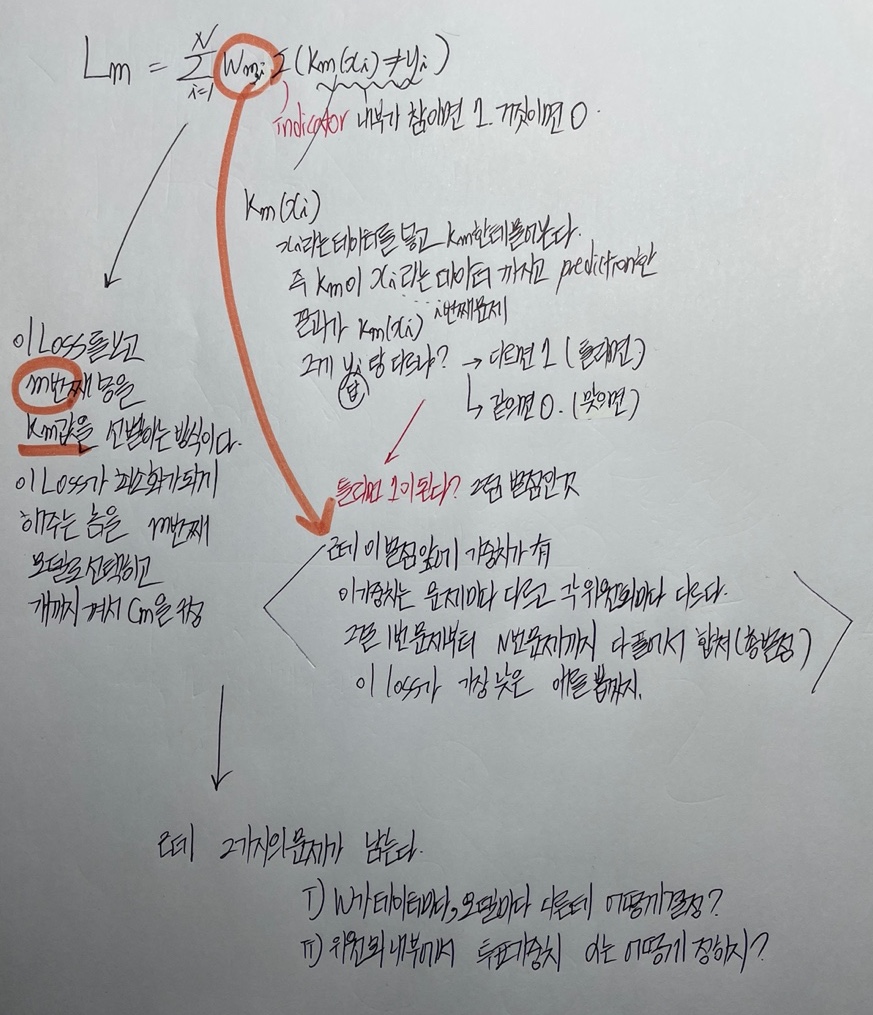 Lm = Σ_{i=1}^{N} Wmi I (Km(xi) ≠ yi)
indicator 내부가 참이면 1. 거짓이면 0.
Km(xi)
xi라는 데이터를 넣고 Km한테 물어본다.
즉 Km이 xi라는 데이터 가지고 prediction한
i번째문제
결과가 Km(xi)
그게 yi랑 다르냐? → 다르면 1 (틀리면)
답
↳ 같으면 0. (맞으면)
틀리면 1이된다? 그럼 벌점인것
근데 이 벌점앞에 가중치가 有
이가중치는 문제마다 다르고 각 위원회마다 다르다.
그걸 1번문제부터 N번문제까지 다 풀어서 합쳐 (총벌점)
이 loss가 가장 낮은 애를 뽑자.
이 Loss를보고
m번째 놈을
Km값을 선별하는 방식이다.
이 Loss가 최소화가되게
해주는 놈을 m번째
모델로선택하고
걔까지 껴서 Cm을
근데 2가지의문제가 남는다.
I) W가 데이터마다, 모델마다 다른데 어떻게결정?
II) 위원회내부에서 투표가중치 α는 어떻게 정하지?